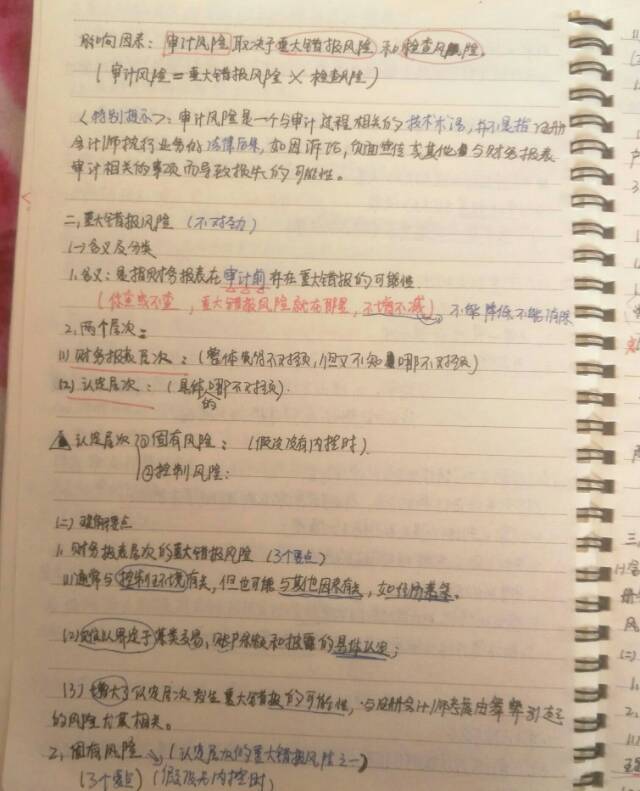 影响因素：审计风险取决于重大错报风险和检查风险。
（审计风险＝重大错报风险×检查风险）
〈特别提示〉：审计风险是一个与审计过程相关的技术术语，并不是指注册
会计师执行业务的法律后果，如因诉讼，负面宣传或其他与财务报表
审计相关的事项而导致损失的可能性。
二，重大错报风险（不对劲）
(一)含义及分类
1.含义：是指财务报表在审计前存在重大错报的可能性
（你查或不查，重大错报风险就在那里，不增不减）不能降低不能消除
2.两个层次：
(1)财务报表层次：（整体觉得不对头，但又不知哪不对头）
(2)认定层次：（具体的哪不对头）.
认定层次 ①固有风险：（假设没有内控时）.
②控制风险：
(二)理解要点
1.财务报表层次的重大错报风险（3个要点）
(1)通常与控制环境有关，但也可能与其他因素有关，如经济萧条。
(2)难以界定于某类交易，账户余额和披露的具体认定；
(3)增大了认定层次发生重大错报的可能性，与注册会计师考虑由舞弊引起
的风险尤其相关。
2，固有风险（认定层次的重大错报风险之一）
（3个要点）（假设无内控时）